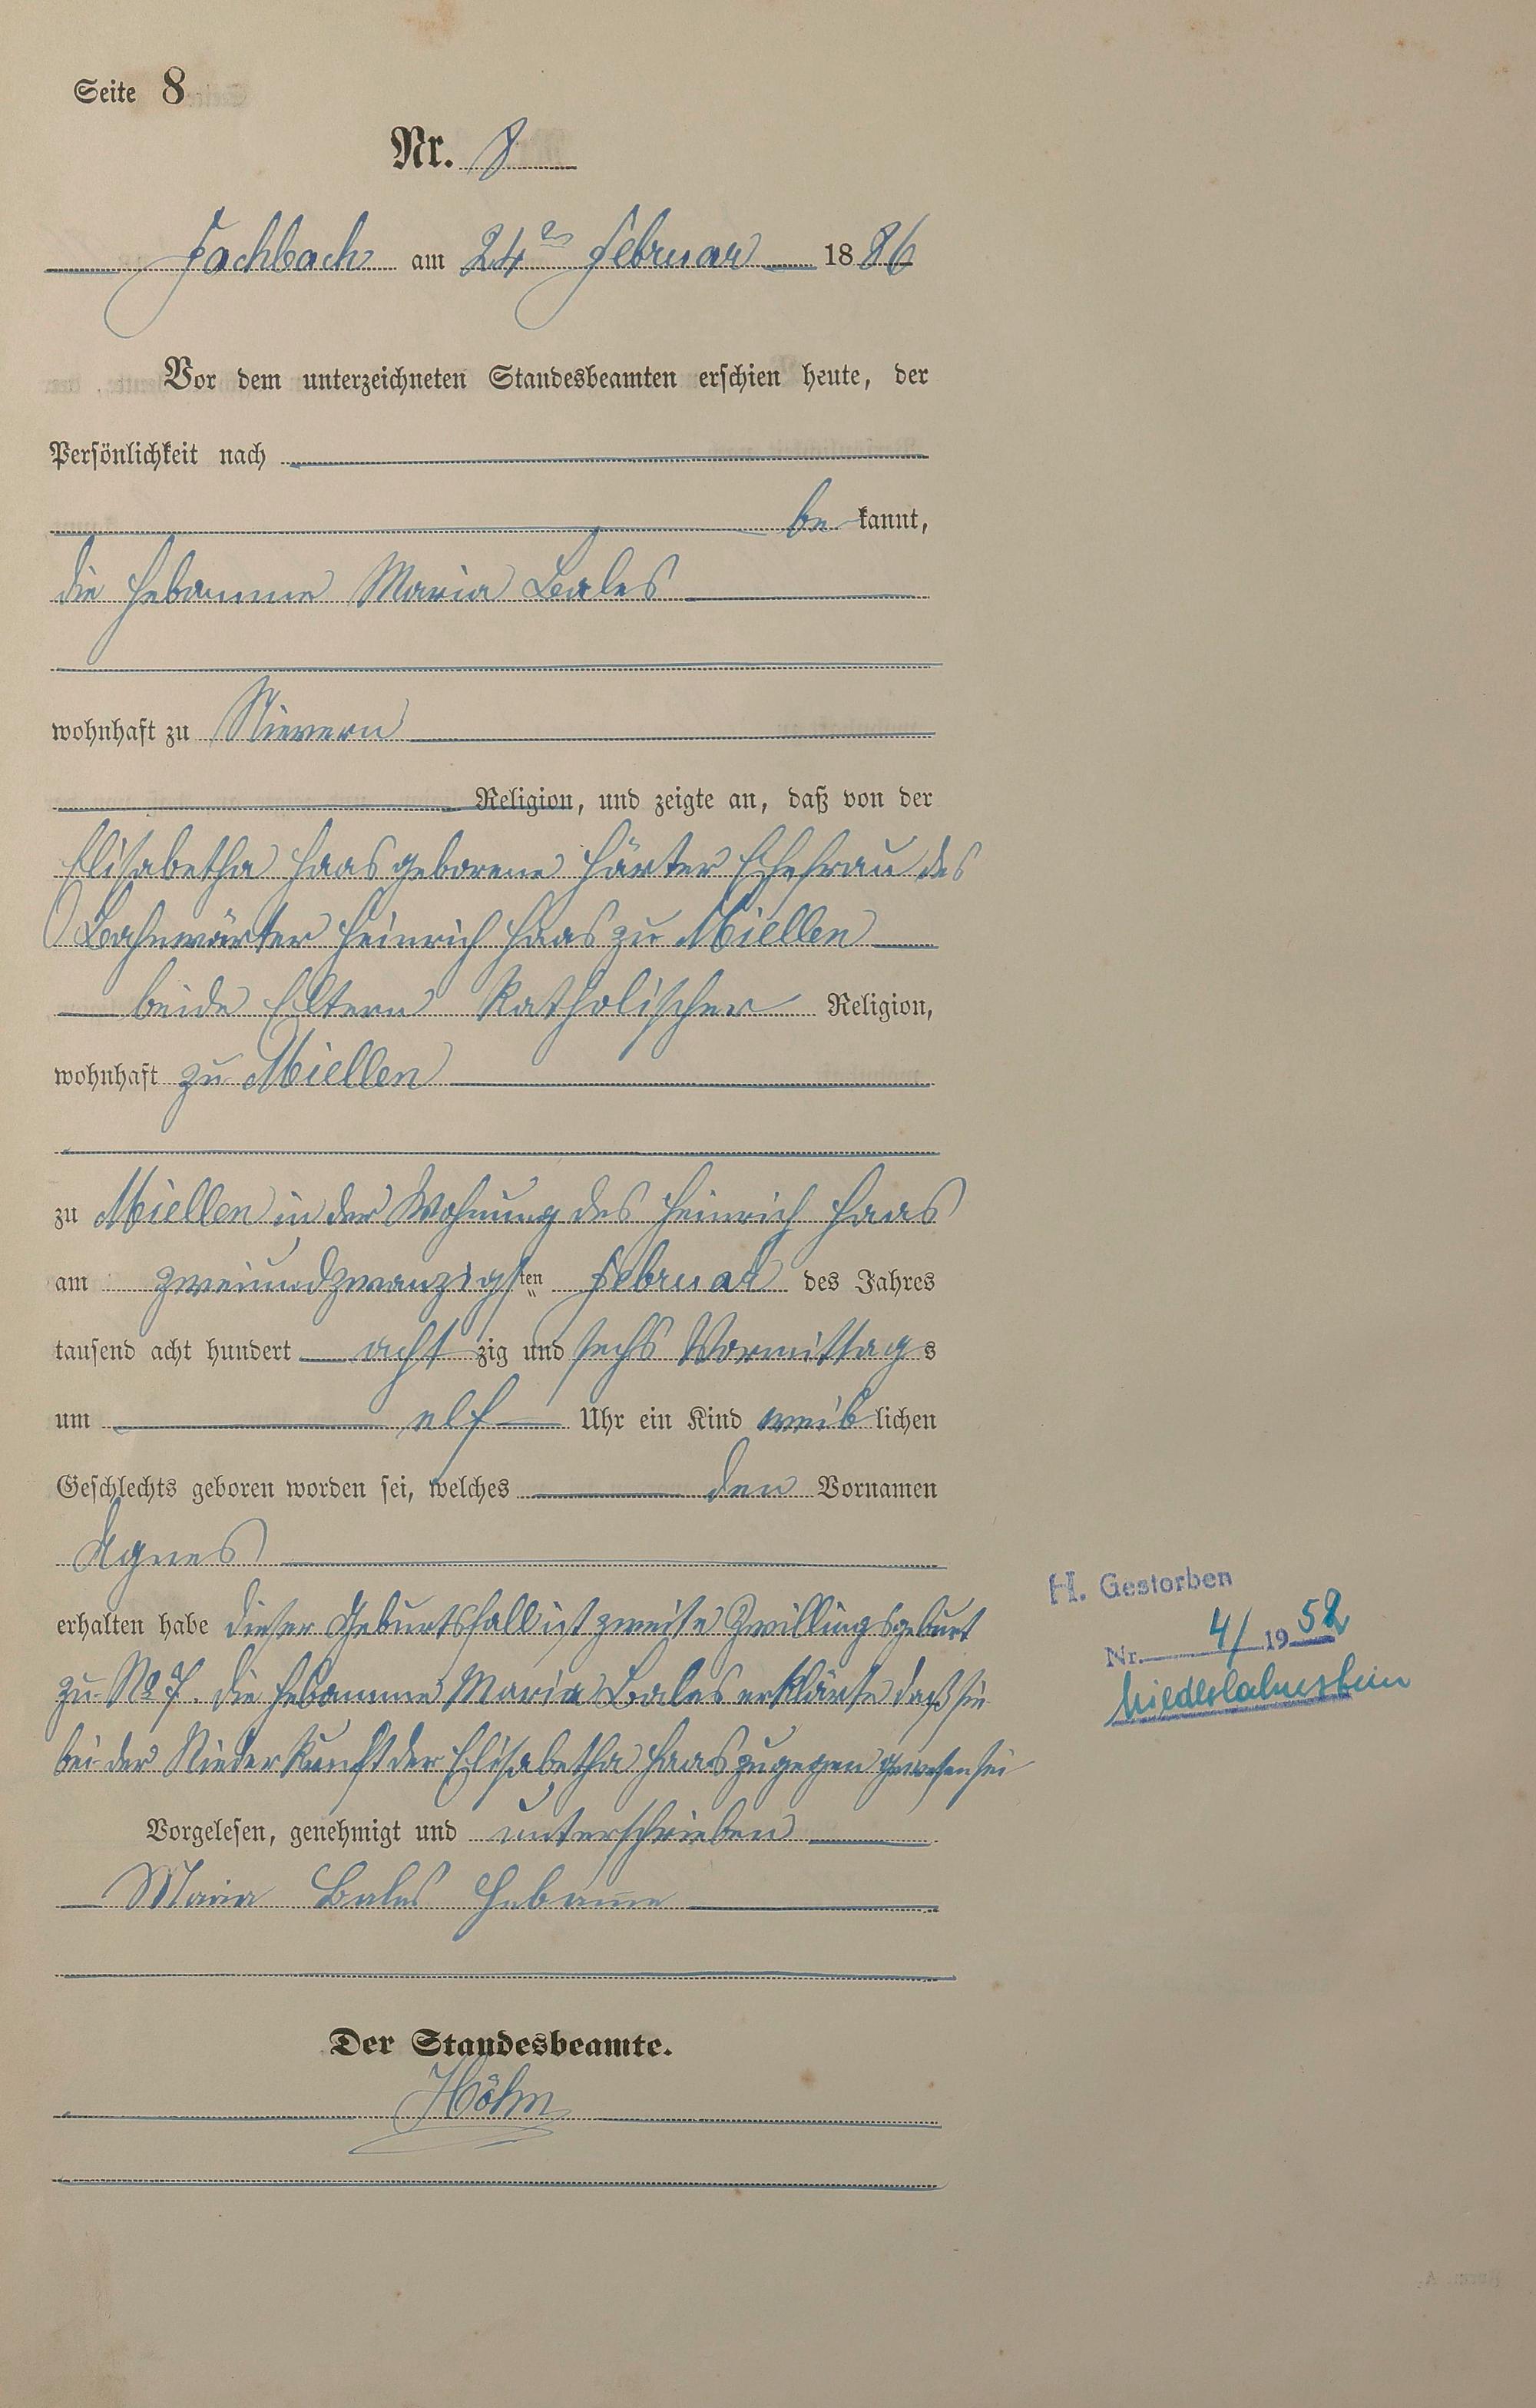 Seite 8
Nr. 8
Fachbach am 24en Februar 1886
Vor dem unterzeichneten Standesbeamten erschien heute, der
Persönlichkeit nach
be kannt,
die Hebamme Maria Bales
wohnhaft zu Nievern
Religion, und zeigte an, daß von der
Elisabetha Haas geborene Härter Ehefrau des
Bahnwärter Heinrich Haas zu Miellen
beide Eltern Katholischer Religion,
wohnhaft zu Miellen
zu Miellen in der Wohnung des Heinrich Haas
am zweiundzwanzigsten Februar des Jahres
tausend acht hundert acht zig und sechs Vormittags
um elf Uhr ein Kind weib lichen
Geschlechts geboren worden sei, welches den Vornamen
Agnes
erhalten habe dieser Geburtsfall ist zweite Zwillingsgeburt
zu No 7. die Hebamme Maria Bales erklärte daß sie
bei der Niederkunft der Elisabetha Haas zugegen gewesen sei
Vorgelesen, genehmigt und unterschrieben
Maria Bales Hebamme
Der Standesbeamte.
Höhn
H. Gestorben
Nr. 4/1952
Niederlahnstein